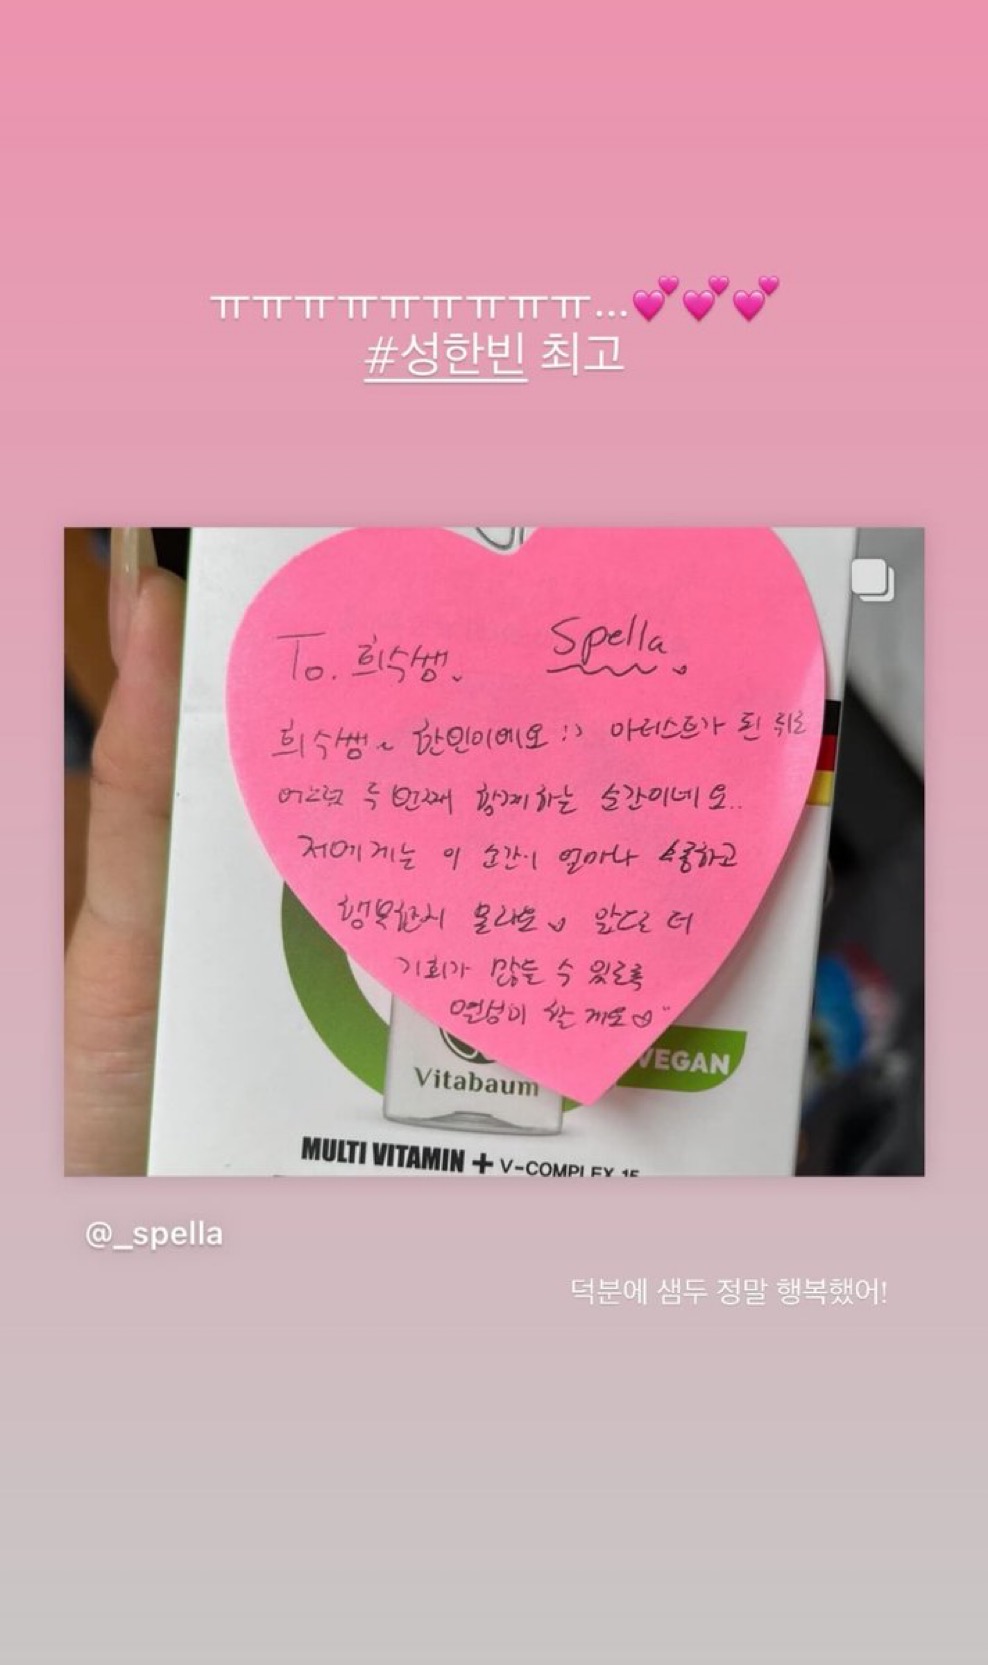 ㅠㅠㅠㅠㅠㅠㅠㅠㅠ...💕💕💕
#성한빈 최고
To. 희수쌤. Spella
희수쌤~ 한빈이에요 :) 아티스트가 된 뒤로
어느덧 두 번째 함께하는 순간이네요..
저에게는 이 순간이 얼마나 소중하고
행복한지 몰라요 앞으로 더
기회가 많을 수 있도록
열심히 할게요♡
Vitabaum
VEGAN
MULTI VITAMIN + V-COMPLEX 15
@_spella
덕분에 샘두 정말 행복했어!